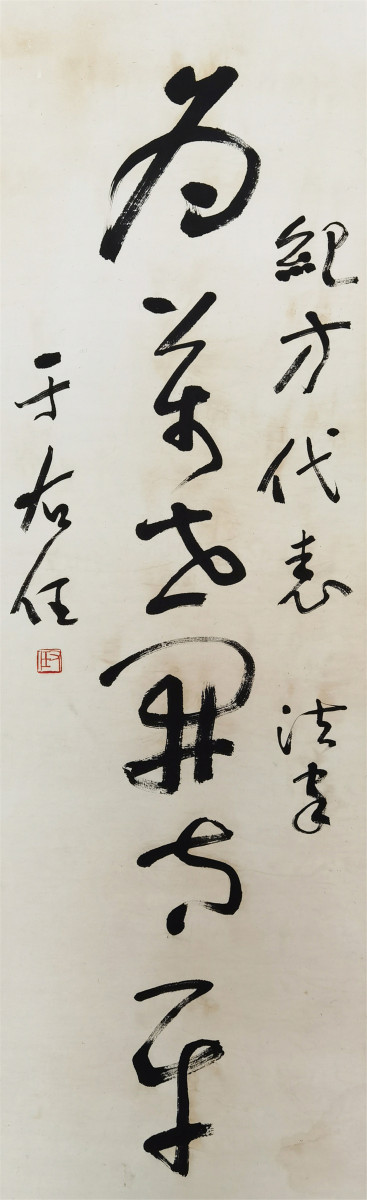 紀方代表 法家
為萬世開太平
于右任
右任